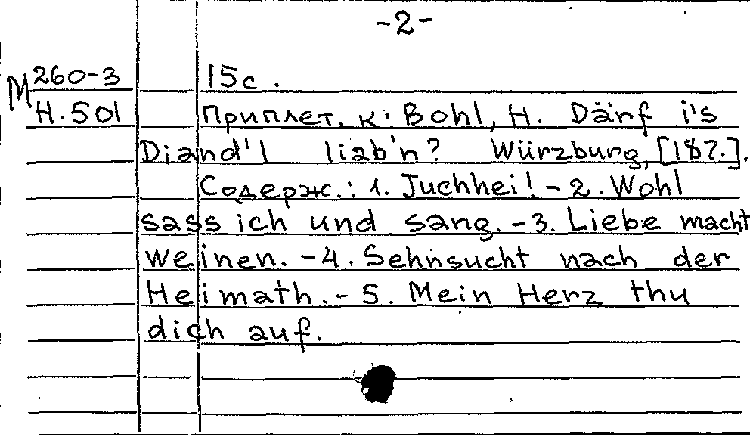 -2-
M 260-3 15с.
H.501 Приплет. к: Bohl, H. Därf i's
Diand'l liab'n? Würzburg, [187.].
Содерж.: 1. Juchhei! - 2. Wohl
sass ich und sang. - 3. Liebe macht
weinen. - 4. Sehnsucht nach der
Heimath. - 5. Mein Herz thu
dich auf.